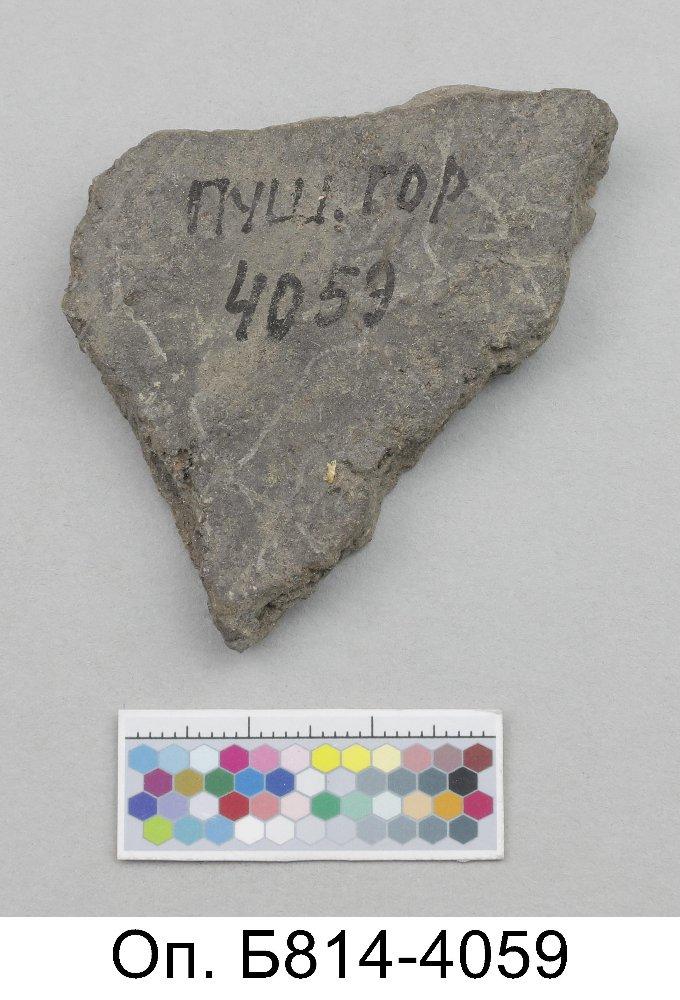 ПУШ. ГОР
4059
Оп. Б814-4059